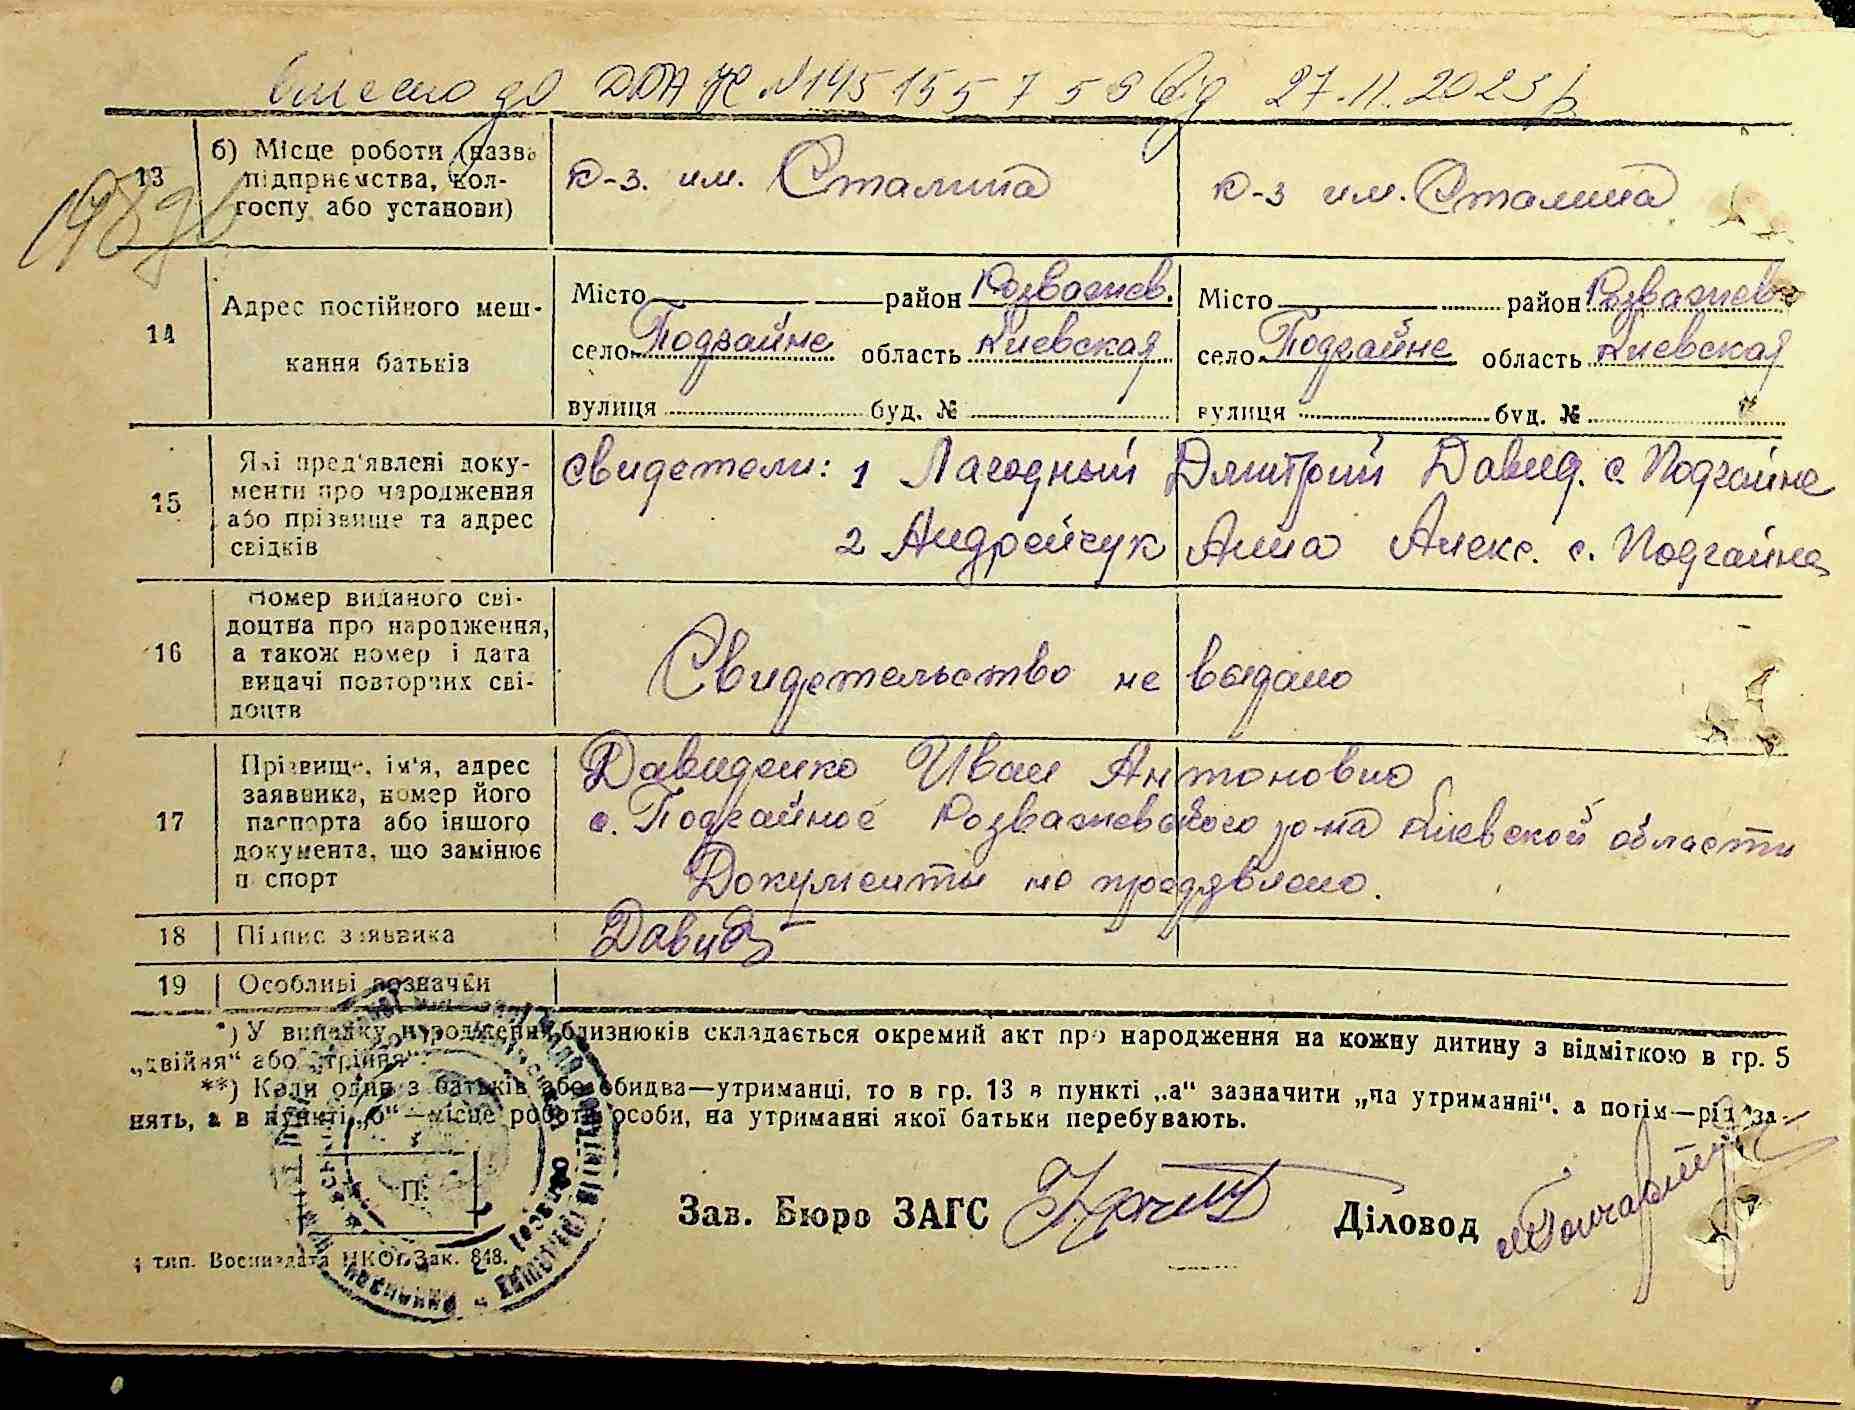 внесено до ДРАЦС №145 155 7 5 8 від 27.11.2023 р.
13 б) Місце роботи (назва підприємства, колгоспу або установи) к-з. им. Сталина к-з им. Сталина
14 Адрес постійного мешкання батьків
Місто район Розважев. Місто район Розважев
село Подгайне область Киевская село Подгайне область Киевская
вулиця буд. № вулиця буд. №
15 Які пред'явлені документи про народження або прізвище та адрес свідків
свидетели: 1 Лагодный Дмитрий Давид. с. Подгайне
2 Андрейчук Анна Алекс. с. Подгайне
16 Номер виданого свідоцтва про народження, а також номер і дата видачі повторних свідоцтв
Свидетельство не выдано
17 Прізвище, ім'я, адрес заявника, номер його паспорта або іншого документа, що замінює паспорт
Давиденко Иван Антонович
с. Подгайное Розважевского р-на Киевской области
Документы не предъявлено.
18 Підпис заявника Давид
19 Особливі позначки
*) У випадку народження близнюків складається окремий акт про народження на кожну дитину з відміткою в гр. 5
„двійня“ або „трійня“.
**) Коли один з батьків або обидва—утриманці, то в гр. 13 в пункті „а“ зазначити „на утриманні“, а потім—рід за-
нять, а в пункті „б“—місце роботи особи, на утриманні якої батьки перебувають.
М. П.
Зав. Бюро ЗАГС Діловод
тип. Воениздата НКО. Зак. 848.